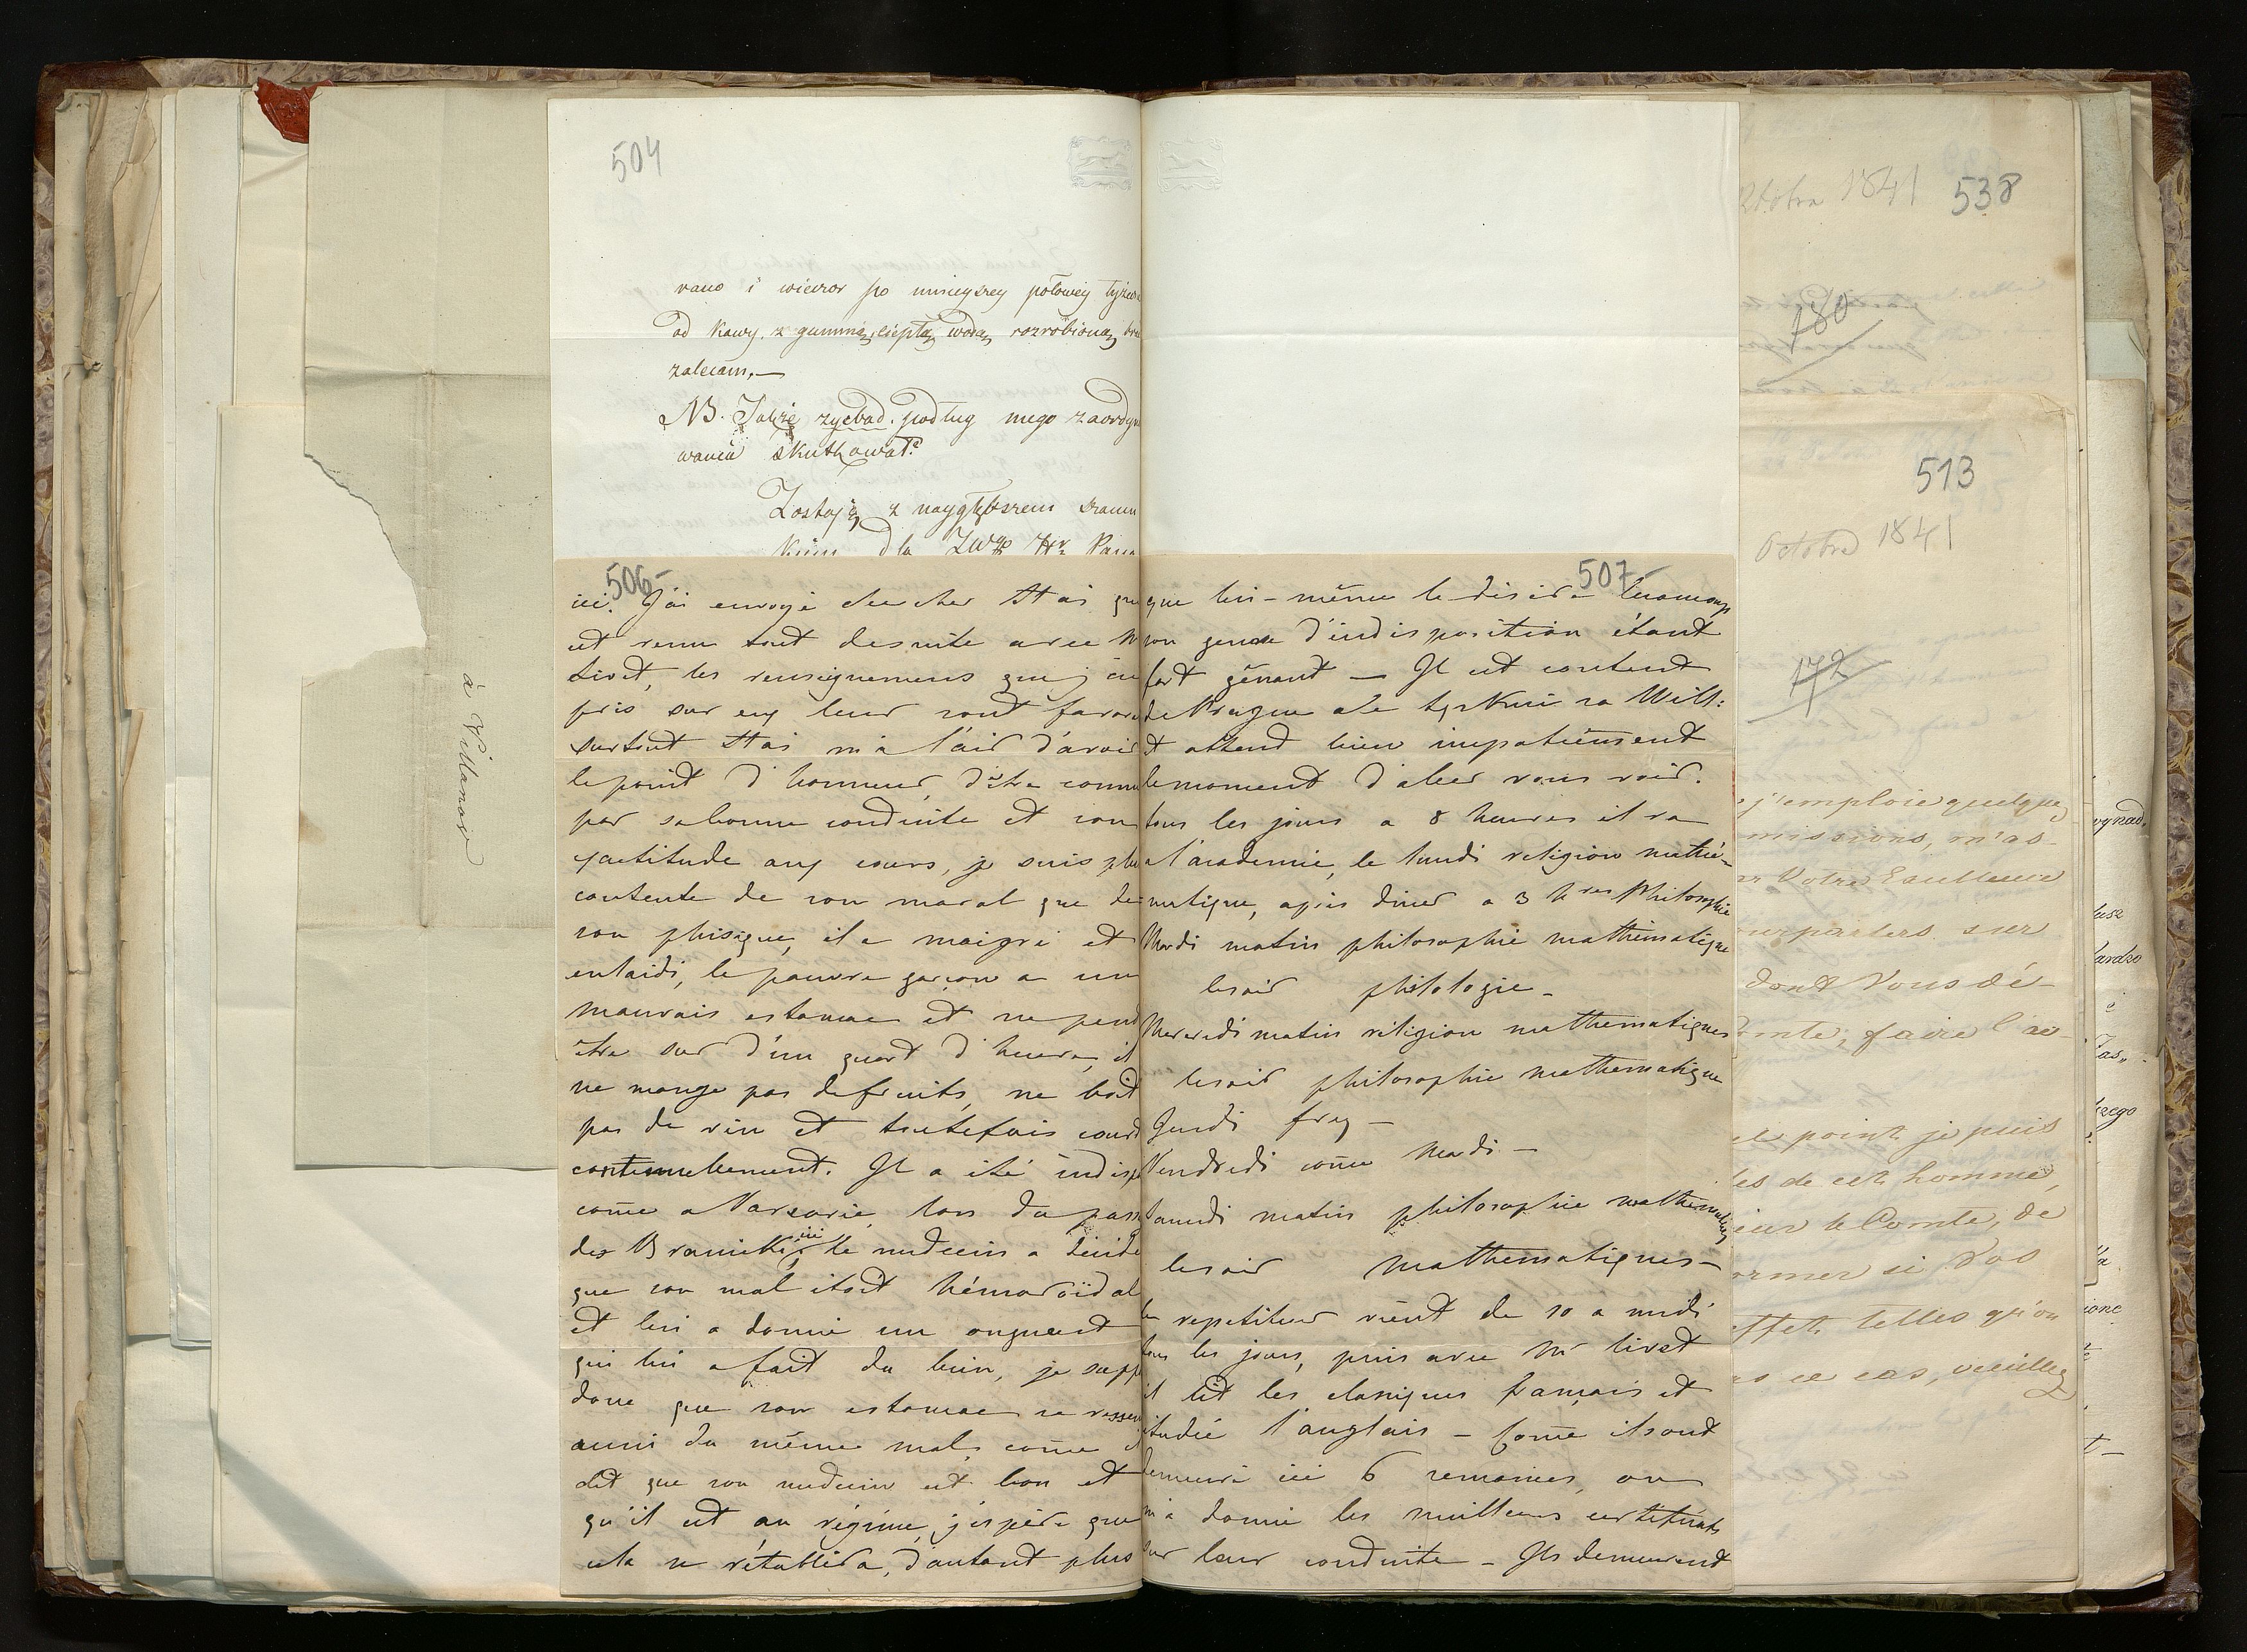 504
rano i wieczor po mnieyszey połowey
od Kawy, z gummą, ciepłą wodą rozrobioną
zalecam.—
NB. podług mego zaordy
wania skutkował?
Zostaję z naygłębszem szacun
dla
à Villanow
506
ici. J'ai envoyé chercher Stas
est venu tout desuite avec
Livet, les renseignemens que j'ai
pris sur eux leur sont favora
surtout Stas m'a l'air d'avoir
le point d'honneur, d'être connu
par sa bonne conduite et son
exactitude aux cours, je suis plus
contente de son moral que de
son phisique, il a maigri et
enlaidi, le pauvre garçon a un
mauvais estomac et ne peut
être sur d'un quart d'heure, il
ne mange pas de fruits, ne boit
pas de vin et toutefois court
continuellement. Il a été indisp
come a Varsovie, lors du pass
des Branicki ici, le medecin a décidé
que son mal étoit hémoroïdal
et lui a donné un onguent
qui lui a fait du bien, je supp
donc que son estomac se ressen
aussi du même mal, come il
dit que son medecin est bon et
qu'il est au régime, j'espère que
cela se rétablira, d'autant plus
507
que lui-même le désire beaucoup
son genre d'indisposition étant
fort gênant — Il est content
de Prague
et attend bien impatiemment
le moment d'aller vous voir.
tous les jours a 8 heures il va
a l'academie, le lundi religion mathé-
matique, après diner a 3 hres Philosophie
Mardi matin philosophie mathématique
le soir philologie -
Mercredi matin religion mathematiques
le soir philosophie mathematique
Jeudi frey -
Vendredi come Mardi -
Samedi matin philosophie mathematiques
le soir Mathematiques -
le repetiteur vient de 10 a midi
tous les jours, puis avec Mr Livet
il lit les classiques français et
étudie l'anglais - Come ils ont
demeuré ici 6 semaines, on
m'a donné les meilleurs certificats
sur leur conduite - Ils demeurent
Octobre 1841
538
180
513
Octobre 1841
172
j'emploie quelques
missions, m'as-
Votre Excellence
sur
dont Vous dé-
faire
point je puis
de cet homme,
le Comte, de
si Vos
effet telles qu'on
ce cas, veuillez